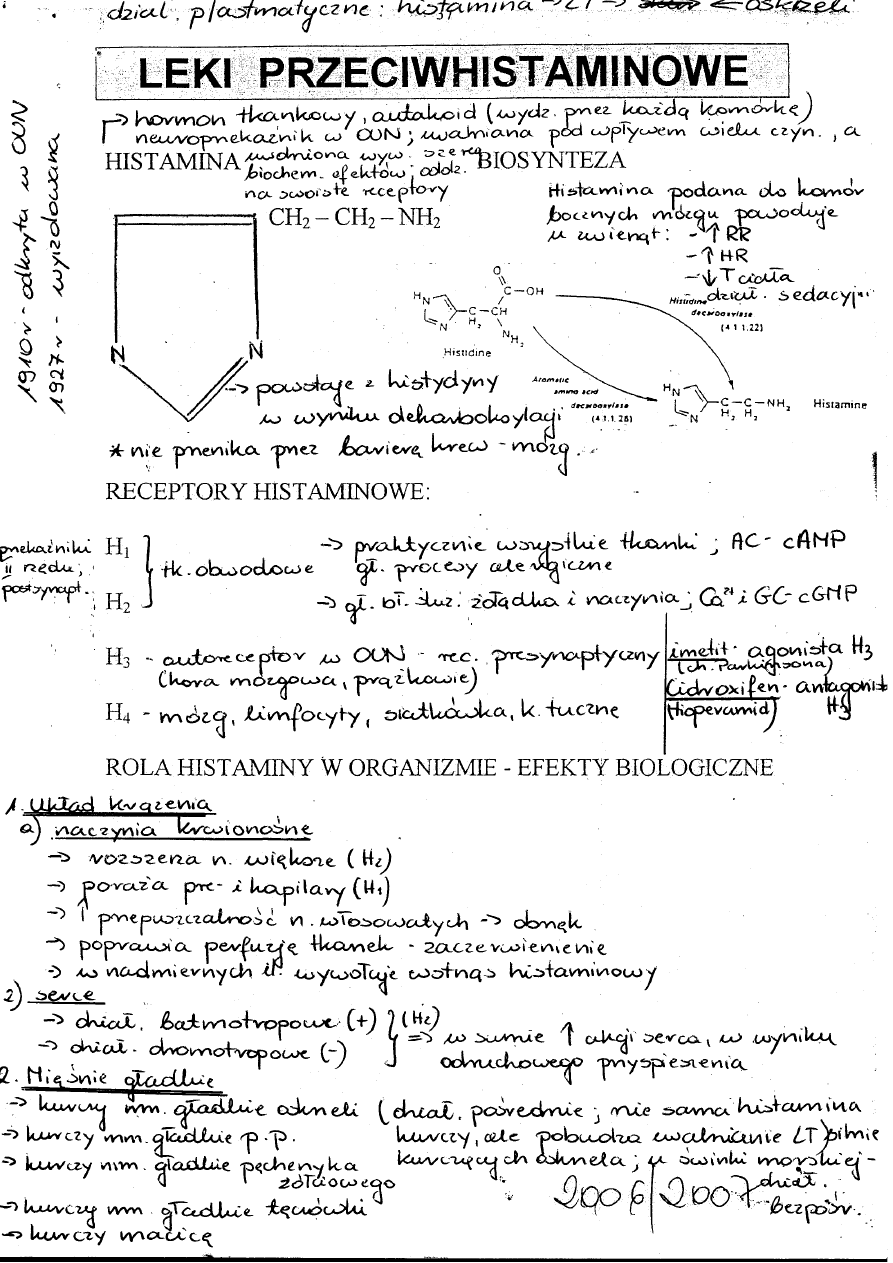 dział. plastmatyczne: histamina → LT → ← oskrzeli
LEKI PRZECIWHISTAMINOWE
→ hormon tkankowy, autakoid (wydz. przez każdą komórkę)
neuroprzekaźnik w OUN; uwalniana pod wpływem wielu czyn., a
HISTAMINA uwolniona wyw. szereg BIOSYNTEZA
biochem. efektów; oddz.
na swoiste receptory
1910r - odkryta w OUN
1927r - wyizolowana
CH2 – CH2 – NH2
N N
Histamina podana do komór
bocznych mózgu powoduje
u zwierząt: - ↑ RR
- ↑ HR
- ↓ T ciała
dział. sedacyjn
O
C–OH
HN
N
C–CH
H2
NH2
Histidine
Histidine
decarboxylase
(4.1.1.22)
Aromatic
amino acid
decarboxylase
(4.1.1.28)
HN
N
C–C–NH2
H2 H2
Histamine
→ powstaje z histydyny
w wyniku dekarboksylacji
* nie przenika przez barierę krew - mózg.
RECEPTORY HISTAMINOWE:
przekaźniki
II rzędu;
postsynapt.
H1 → praktycznie wszystkie tkanki; AC - cAMP
gł. procesy alergiczne
tk. obwodowe
H2 → gł. bł. śluz. żołądka i naczynia; Ca2+ i GC - cGMP
H3 - autoreceptor w OUN - rec. presynaptyczny
(kora mózgowa, prążkowie)
imetit - agonista H3
(ch. Parkinsona)
Cidroxifen - antagonist
(tioperamid) H3
H4 - mózg, limfocyty, siatkówka, k. tuczne
ROLA HISTAMINY W ORGANIZMIE - EFEKTY BIOLOGICZNE
1. Układ krążenia
a) naczynia krwionośne
→ rozszerza n. większe (H2)
→ poraża pre- i kapilary (H1)
→ ↑ przepuszczalność n. włosowatych → obrzęk
→ poprawia perfuzję tkanek - zaczerwienienie
→ w nadmiernych il. wywołuje wstrząs histaminowy
2) serce
→ dział. batmotropowe (+) (H2)
→ dział. dromotropowe (-)
⇒ w sumie ↑ akcji serca, w wyniku
odruchowego przyspieszenia
2. Mięśnie gładkie
→ kurczy mm. gładkie oskrzeli (dział. pośrednie; nie sama histamina
→ kurczy mm. gładkie p.p. kurczy, ale pobudza uwalnianie LT) silnie
→ kurczy mm. gładkie pęcherzyka kurczących oskrzela; u świnki morskiej -
żółciowego dział.
→ kurczy mm. gładkie tęczówki bezpośr.
→ kurczy macicę
2006/2007